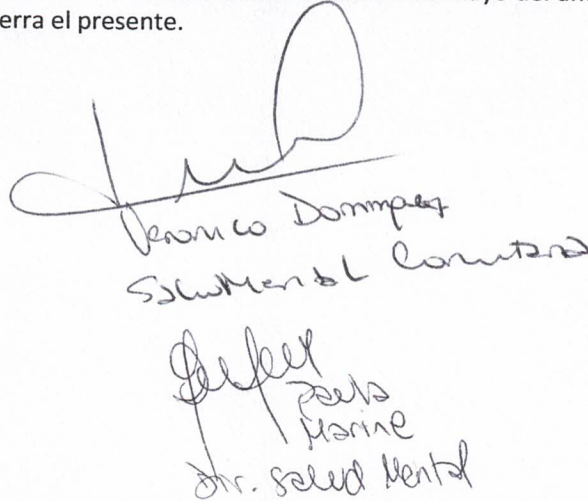 erra el presente.
Veronica Dominguez
Salud Mental Comunitaria
Paula
Marine
Dir. Salud Mental